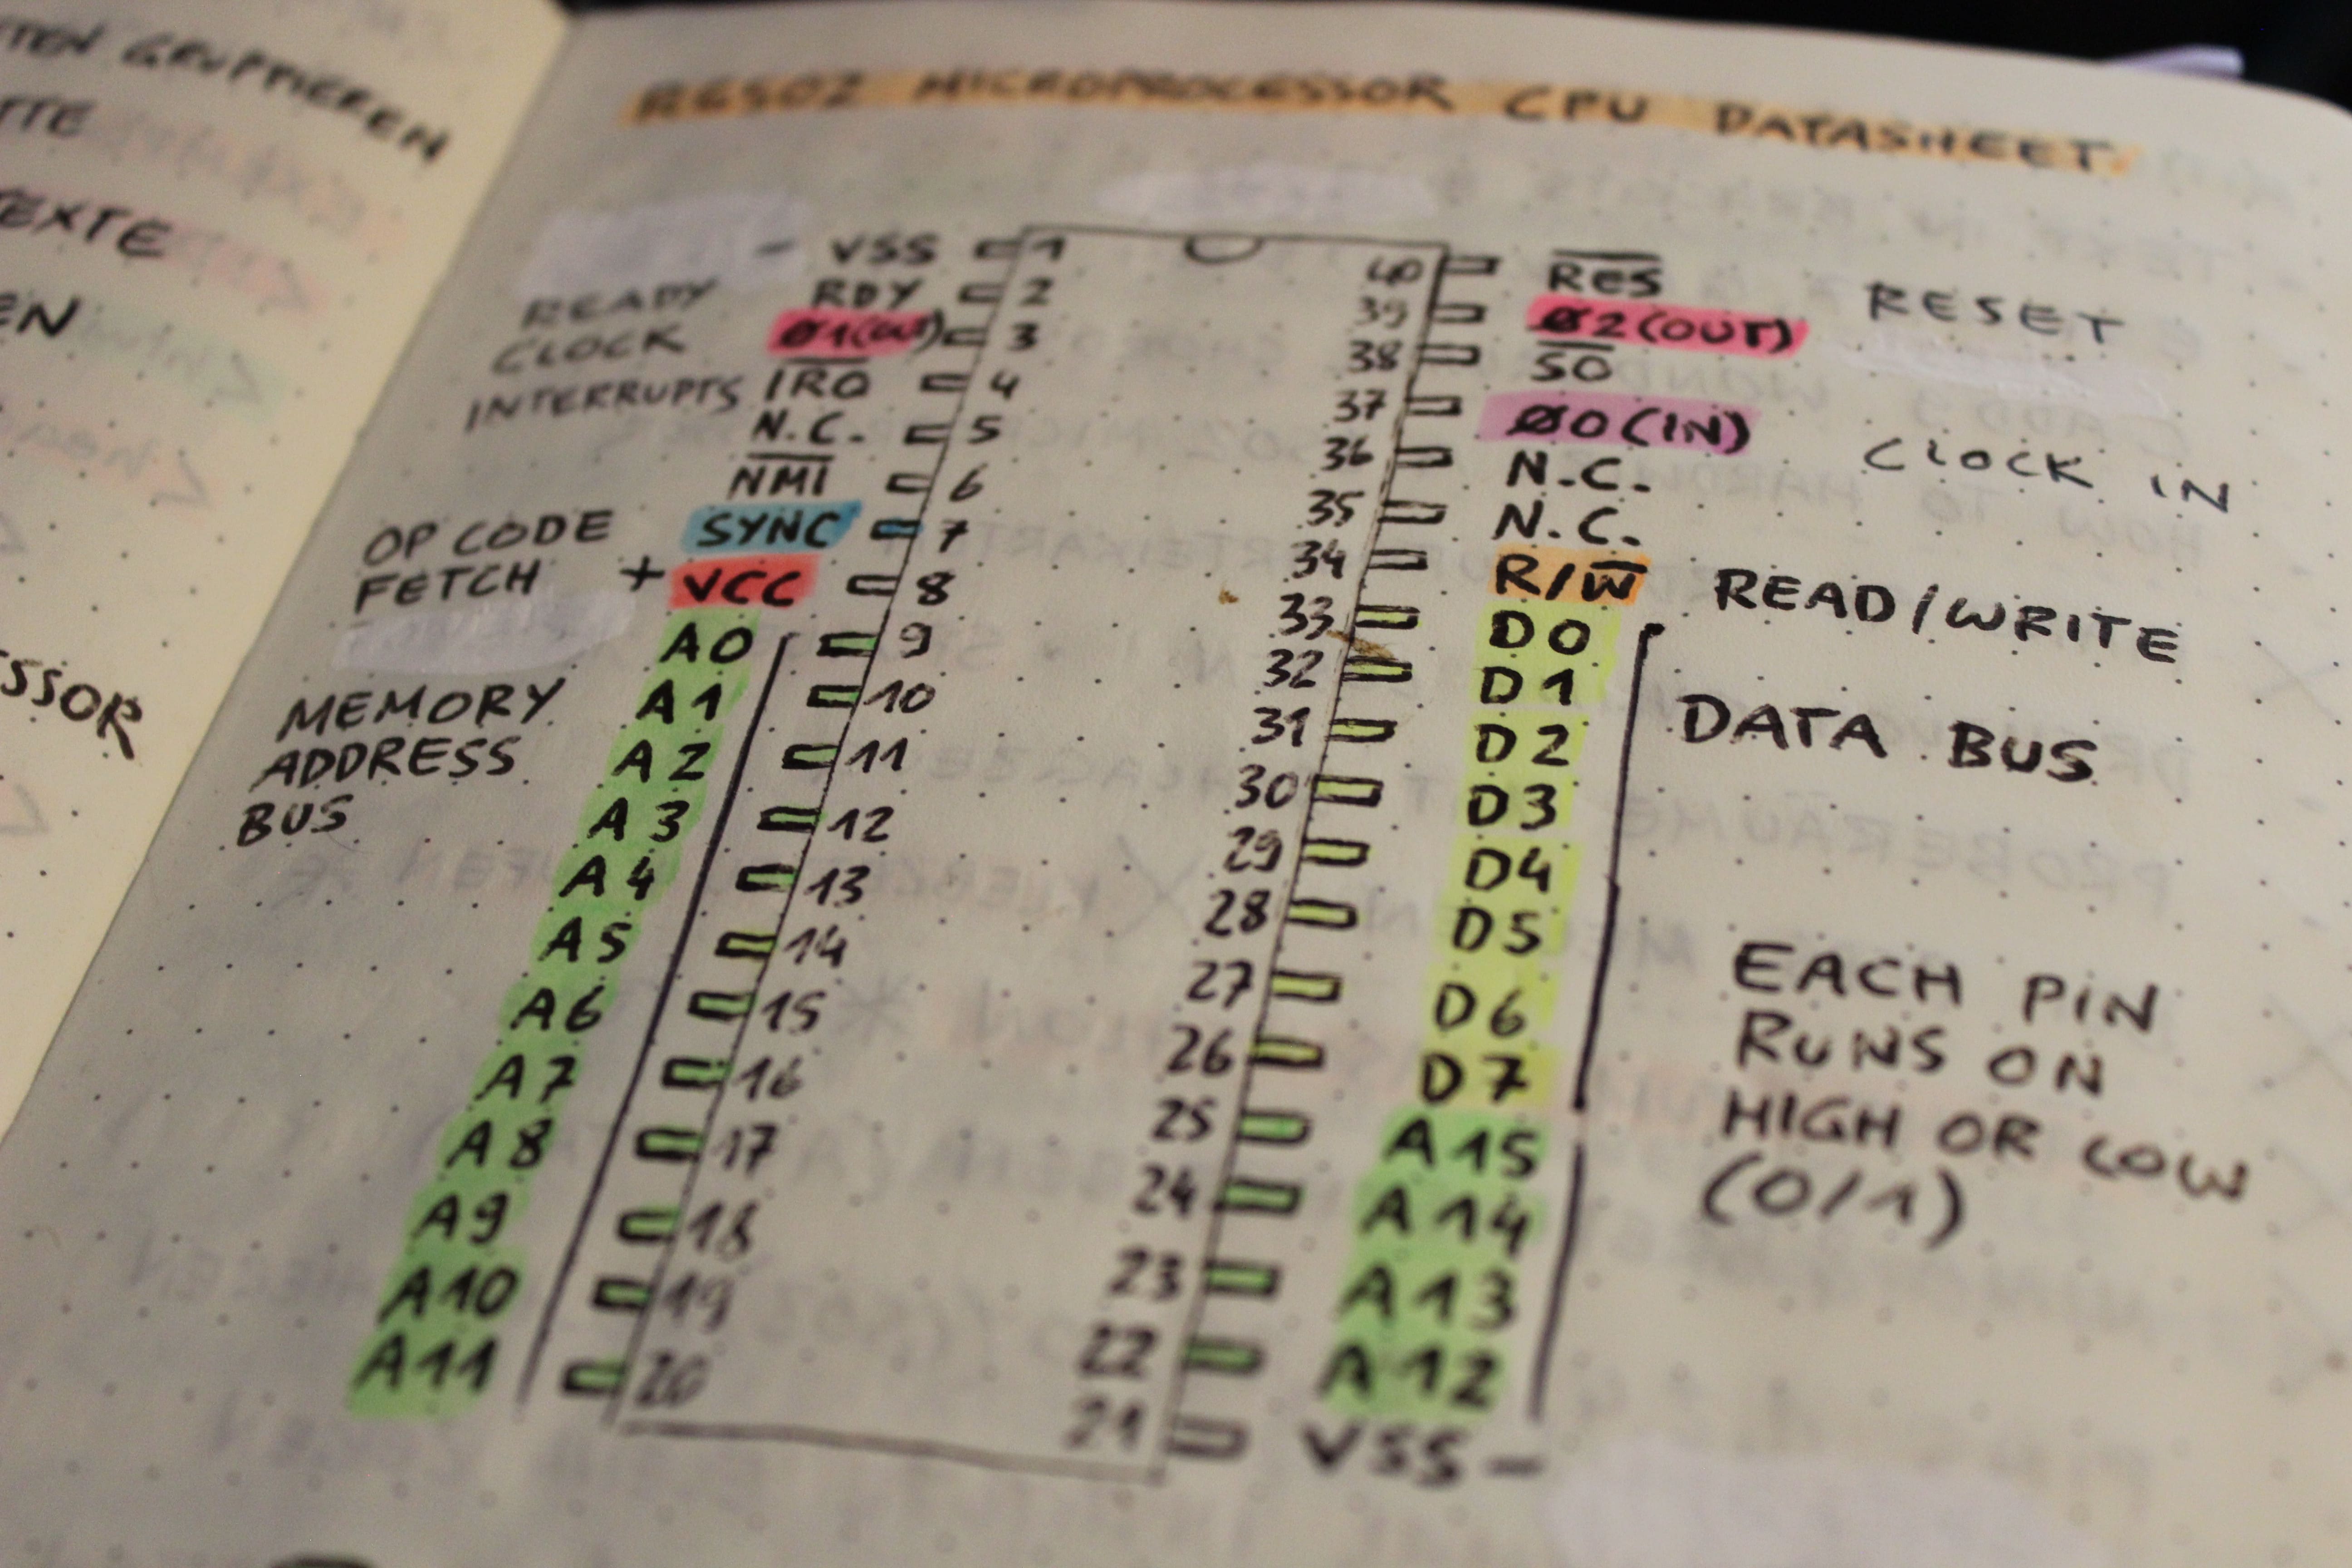 GRUPPIEREN
TEXTE
R6502 MICROPROCESSOR CPU DATASHEET
- VSS 1
READY RDY 2
CLOCK Ø1(OUT) 3
INTERRUPTS IRQ 4
N.C. 5
NMI 6
OP CODE SYNC 7
FETCH + VCC 8
A0 9
MEMORY A1 10
ADDRESS A2 11
BUS A3 12
A4 13
A5 14
A6 15
A7 16
A8 17
A9 18
A10 19
A11 20
40 RES RESET
39 Ø2(OUT)
38 SO
37 Ø0(IN) CLOCK IN
36 N.C.
35 N.C.
34 R/W READ/WRITE
33 D0
32 D1
31 D2 DATA BUS
30 D3
29 D4
28 D5
27 D6
26 D7
25 A15
24 A14
23 A13
22 A12
21 VSS -
EACH PIN
RUNS ON
HIGH OR LOW
(0/1)